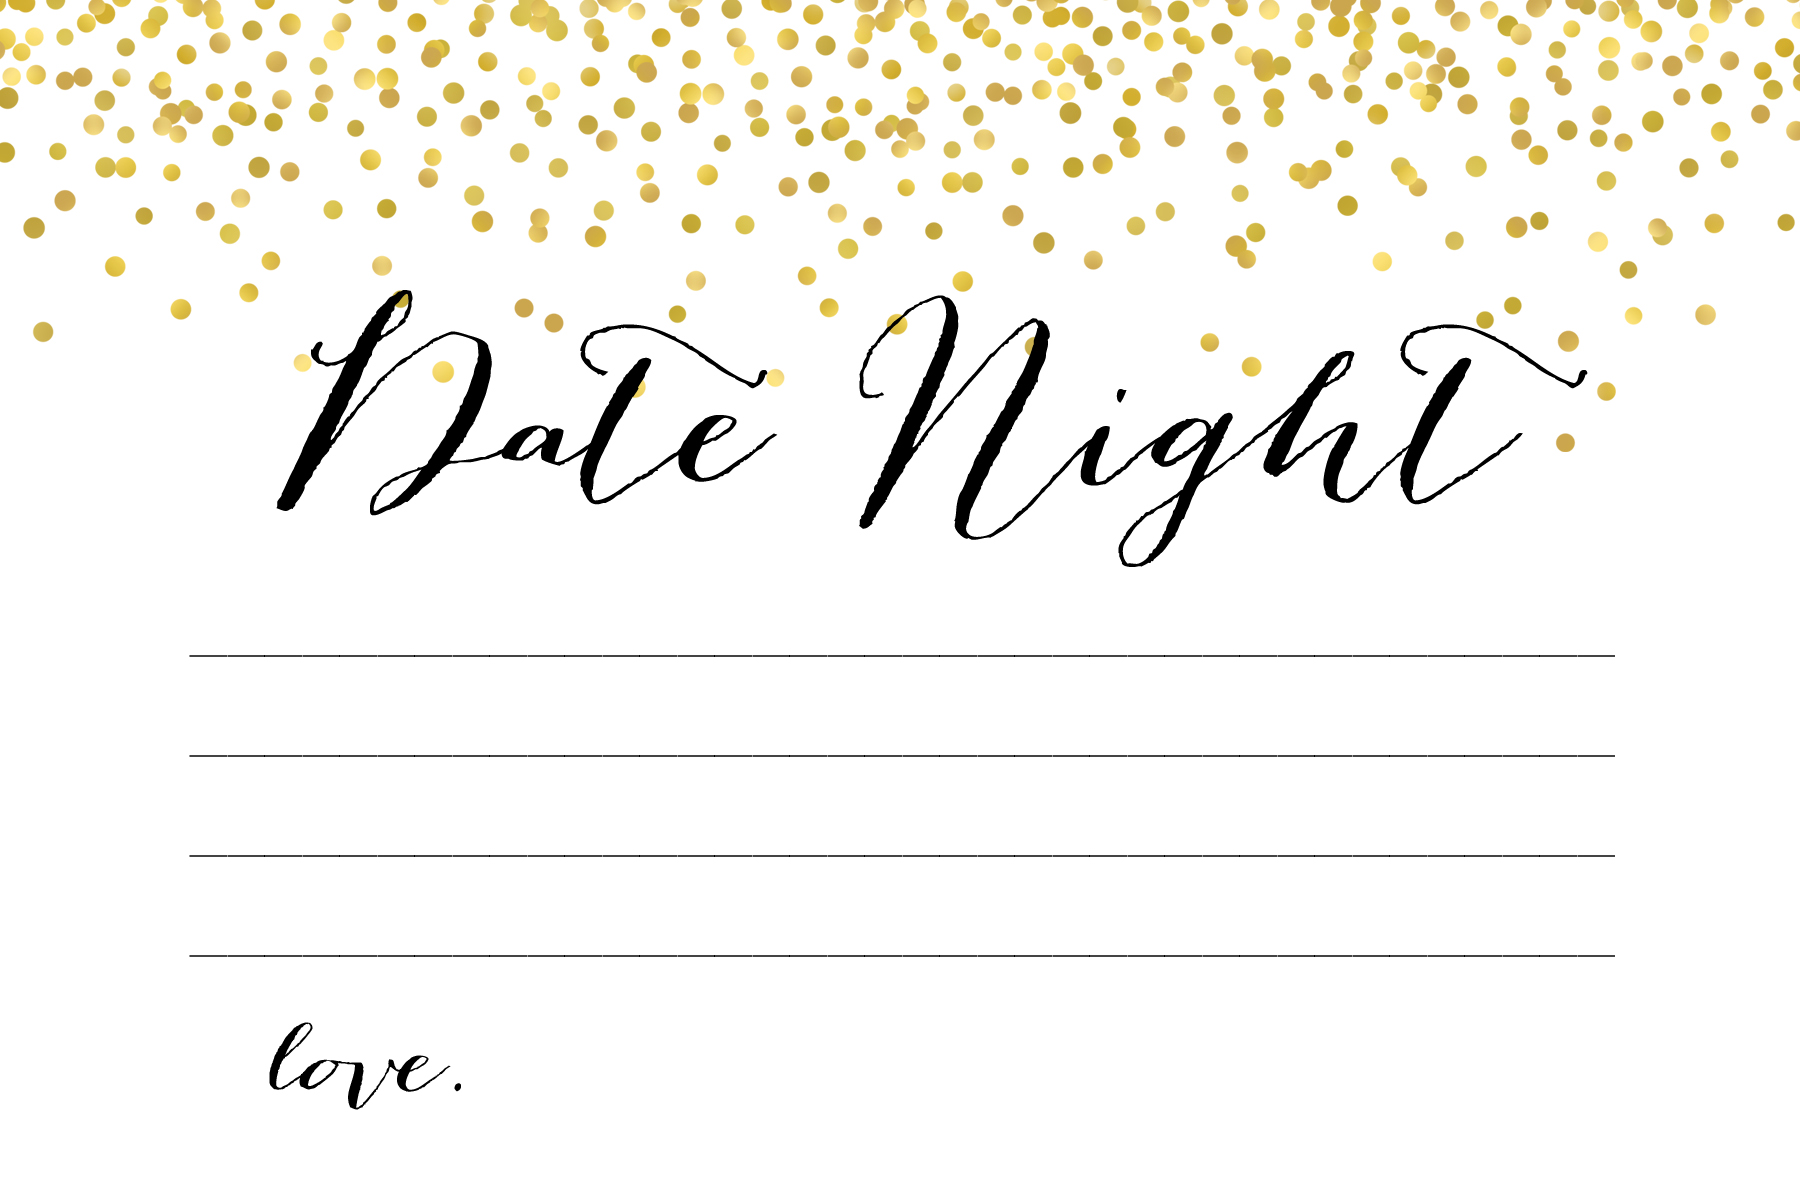 Date Night
love.